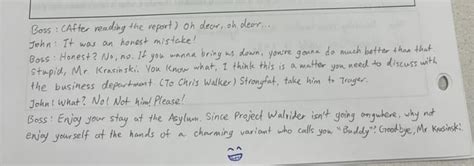 Boss: (After reading the report) Oh dear, oh dear...
John: It was an honest mistake!
Boss: Honest? No, no. If you wanna bring us down, you're gonna do much better than that
stupid, Mr. Krasinski. You know what, I think this is a matter you need to discuss with
the business department (To Chris Walker) Strongfat, take him to Trager.
John: What? No! Not him! Please!
Boss: Enjoy your stay at the Asylum. Since Project Walrider isn't going anywhere, why not
enjoy yourself at the hands of a charming variant who calls you "Buddy"? Goodbye, Mr. Krasinski.